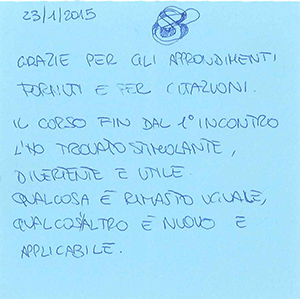 23/1/2015
GRAZIE PER GLI APPROFONDIMENTI
FORNITI E PER CITAZIONI.
IL CORSO FIN DAL 1° INCONTRO
L'HO TROVATO STIMOLANTE,
DIVERTENTE E UTILE.
QUALCOSA È RIMASTO UGUALE,
QUALCOS'ALTRO È NUOVO E
APPLICABILE.